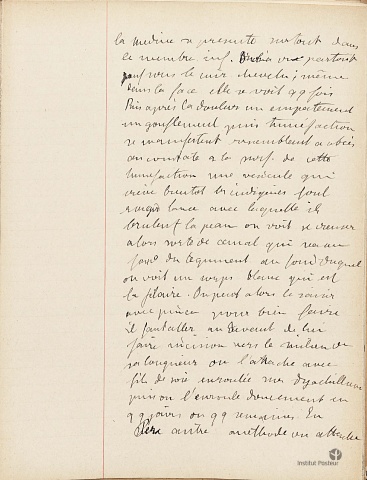 la medine se presente surtout dans
le membre inf. partout
sauf sous le cuir chevelu ; même
dans la face elle se voit qq fois
Puis après la douleur un empatement
un gonflement puis tumefaction
se manifestent ressemblent a abcès
on constate a la surf. de cette
tumefaction une vesicule qui
crève bientot les indigènes font
lance avec laquelle ils
brulent la peau on voit se creuser
alors sorte de canal qui va au
fond du tegument au fond duquel
on voit un corps blanc qui est
la filaire. On peut alors la saisir
avec pince pour bien faire
il faut aller au devant de lui
faire incision vers le milieu de
sa longueur on l'attache avec
fil de soie enroulée sur
puis on l'enroule doucement en
qq jours ou qq semaines. En
autre méthode on attache
Institut Pasteur